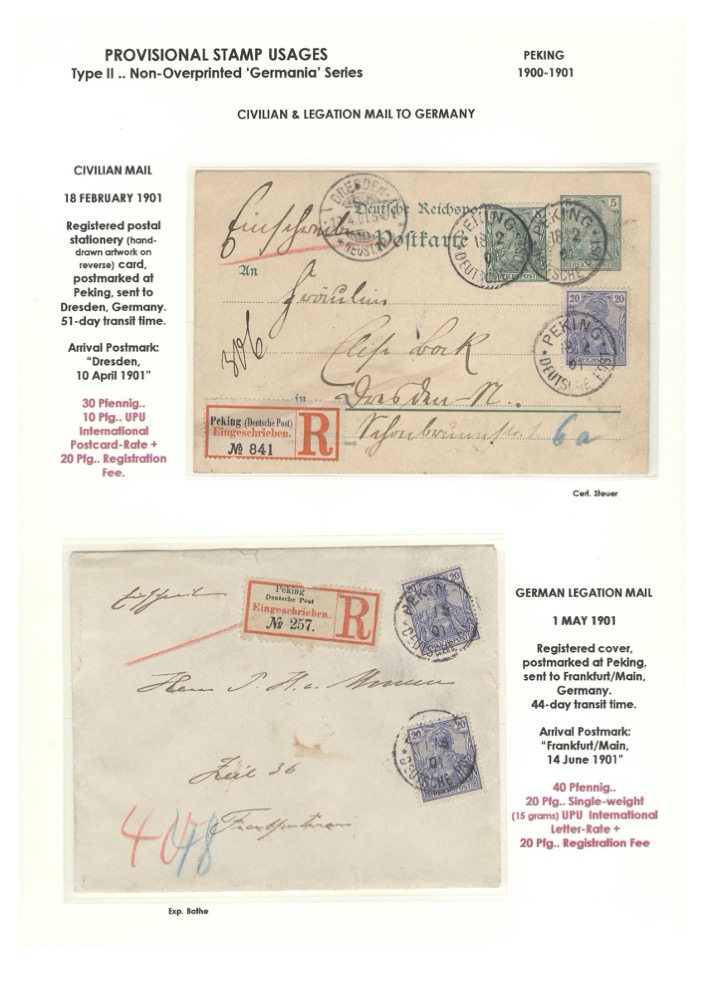 PROVISIONAL STAMP USAGES
Type II .. Non-Overprinted ‘Germania’ Series
PEKING
1900-1901
CIVILIAN & LEGATION MAIL TO GERMANY
CIVILIAN MAIL
18 FEBRUARY 1901
Registered postal
stationery (hand-
drawn artwork on
reverse) card,
postmarked at
Peking, sent to
Dresden, Germany.
51-day transit time.
Arrival Postmark:
“Dresden,
10 April 1901”
30 Pfennig..
10 Pfg.. UPU
International
Postcard-Rate +
20 Pfg.. Registration
Fee.
DRESDEN
Deutsche Reichspost
Postkarte
Einschreiben
An
Fräulein
Elise Bock
in Dresden-N.
6a
306
PEKING
18 2
01
DEUTSCHE
PEKING
18 2
01
DEUTSCHE
5
20 20
PEKING
01
DEUTSCHE
Peking (Deutsche Post)
Eingeschrieben.
№ 841
R
Cert. Steuer
Peking
Deutsche Post
Eingeschrieben.
№ 257.
R
20
PEKING
01
20 20
01
DEUTSCHE
Herrn
Zeil 36
40
48
Exp. Bothe
GERMAN LEGATION MAIL
1 MAY 1901
Registered cover,
postmarked at Peking,
sent to Frankfurt/Main,
Germany.
44-day transit time.
Arrival Postmark:
“Frankfurt/Main,
14 June 1901”
40 Pfennig..
20 Pfg.. Single-weight
(15 grams) UPU International
Letter-Rate +
20 Pfg.. Registration Fee